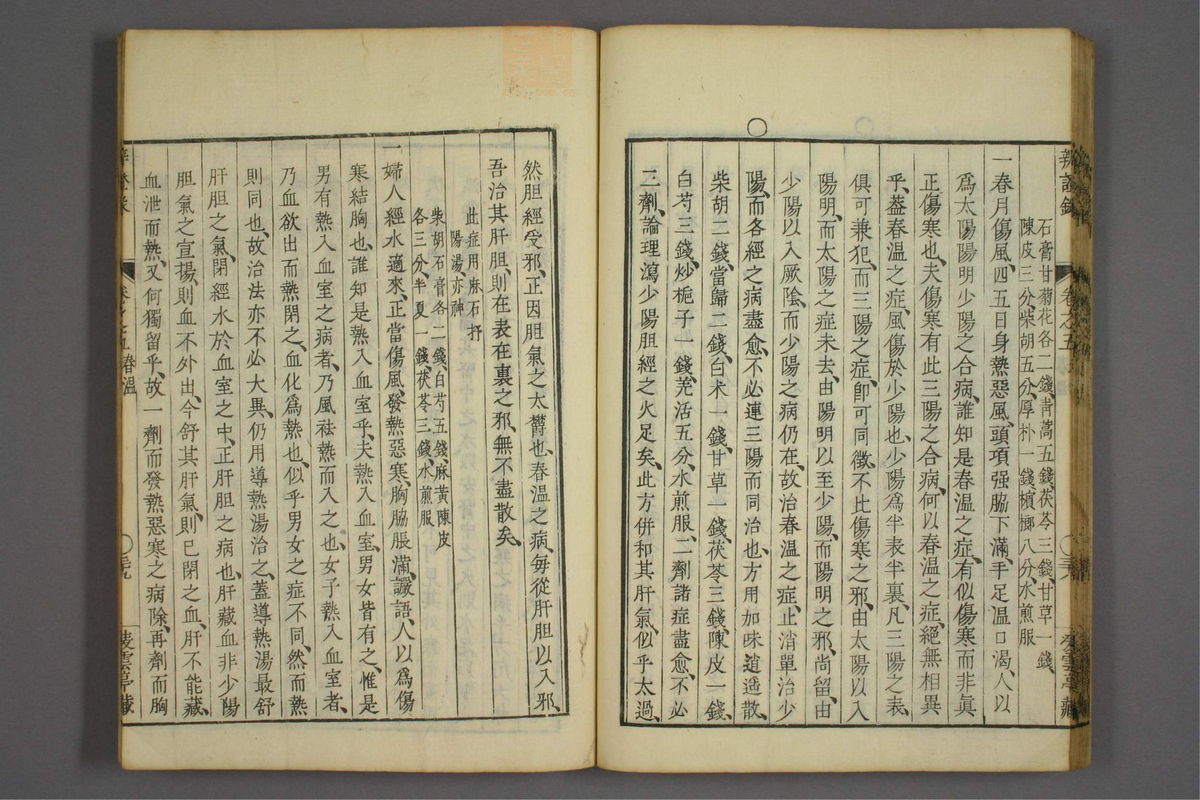 辨證錄 卷之五 凌雲亭藏
石膏甘菊花各二錢、青蒿五錢、茯苓三錢、甘草一錢、
陳皮三分柴胡五分、厚朴一錢檳榔八分、水煎服
一春月傷風、四五日身熱惡風、頭項强脇下滿、手足溫口渴、人以
爲太陽陽明少陽之合病、誰知是春溫之症、有似傷寒而非眞
正傷寒也、夫傷寒有此三陽之合病、何以春溫之症、絕無相異
乎、蓋春溫之症、風傷於少陽也、少陽爲半表半裏、凡三陽之表、
俱可兼犯、而三陽之症、卽可同徵、不比傷寒之邪、由太陽以入
陽明、而太陽之症未去、由陽明以至少陽、而陽明之邪、尙留、由
少陽以入厥陰、而少陽之病仍在、故治春溫之症、止消單治少
陽、而各經之病盡愈、不必連三陽而同治也、方用加味逍遙散、
柴胡二錢、當歸二錢、白术一錢、甘草一錢、茯苓三錢、陳皮一錢、
白芍三錢、炒梔子一錢、羌活五分、水煎服、二劑諸症盡愈、不必
三劑、論理瀉少陽胆經之火足矣、此方併和其肝氣、似乎太過、
然胆經受邪、正因胆氣之太欝也、春溫之病、每從肝胆以入邪、
吾治其肝胆、則在表在裏之邪、無不盡散矣、
此症用麻石抒
陽湯、亦神
柴胡石膏各二錢、白芍五錢、麻黃陳皮
各三分、半夏一錢、茯苓三錢、水煎服
一婦人經水適來、正當傷風、發熱惡寒、胸脇脹滿、讝語、人以爲傷
寒結胸也、誰知是熱入血室乎、夫熱入血室、男女皆有之、惟是
男有熱入血室之病者、乃風袪熱而入之也、女子熱入血室者、
乃血欲出而熱閉之、血化爲熱也、似乎男女之症不同、然而熱
則同也、故治法亦不必大異、仍用導熱湯治之、蓋導熱湯最舒
肝胆之氣、閉經水於血室之中、正肝胆之病也、肝藏血非少陽
胆氣之宣揚、則血不外出、今舒其肝氣、則已閉之血、肝不能藏、
血泄而熱、又何獨留乎、故一劑而發熱惡寒之病除、再劑而胸
春溫
凌雲亭藏